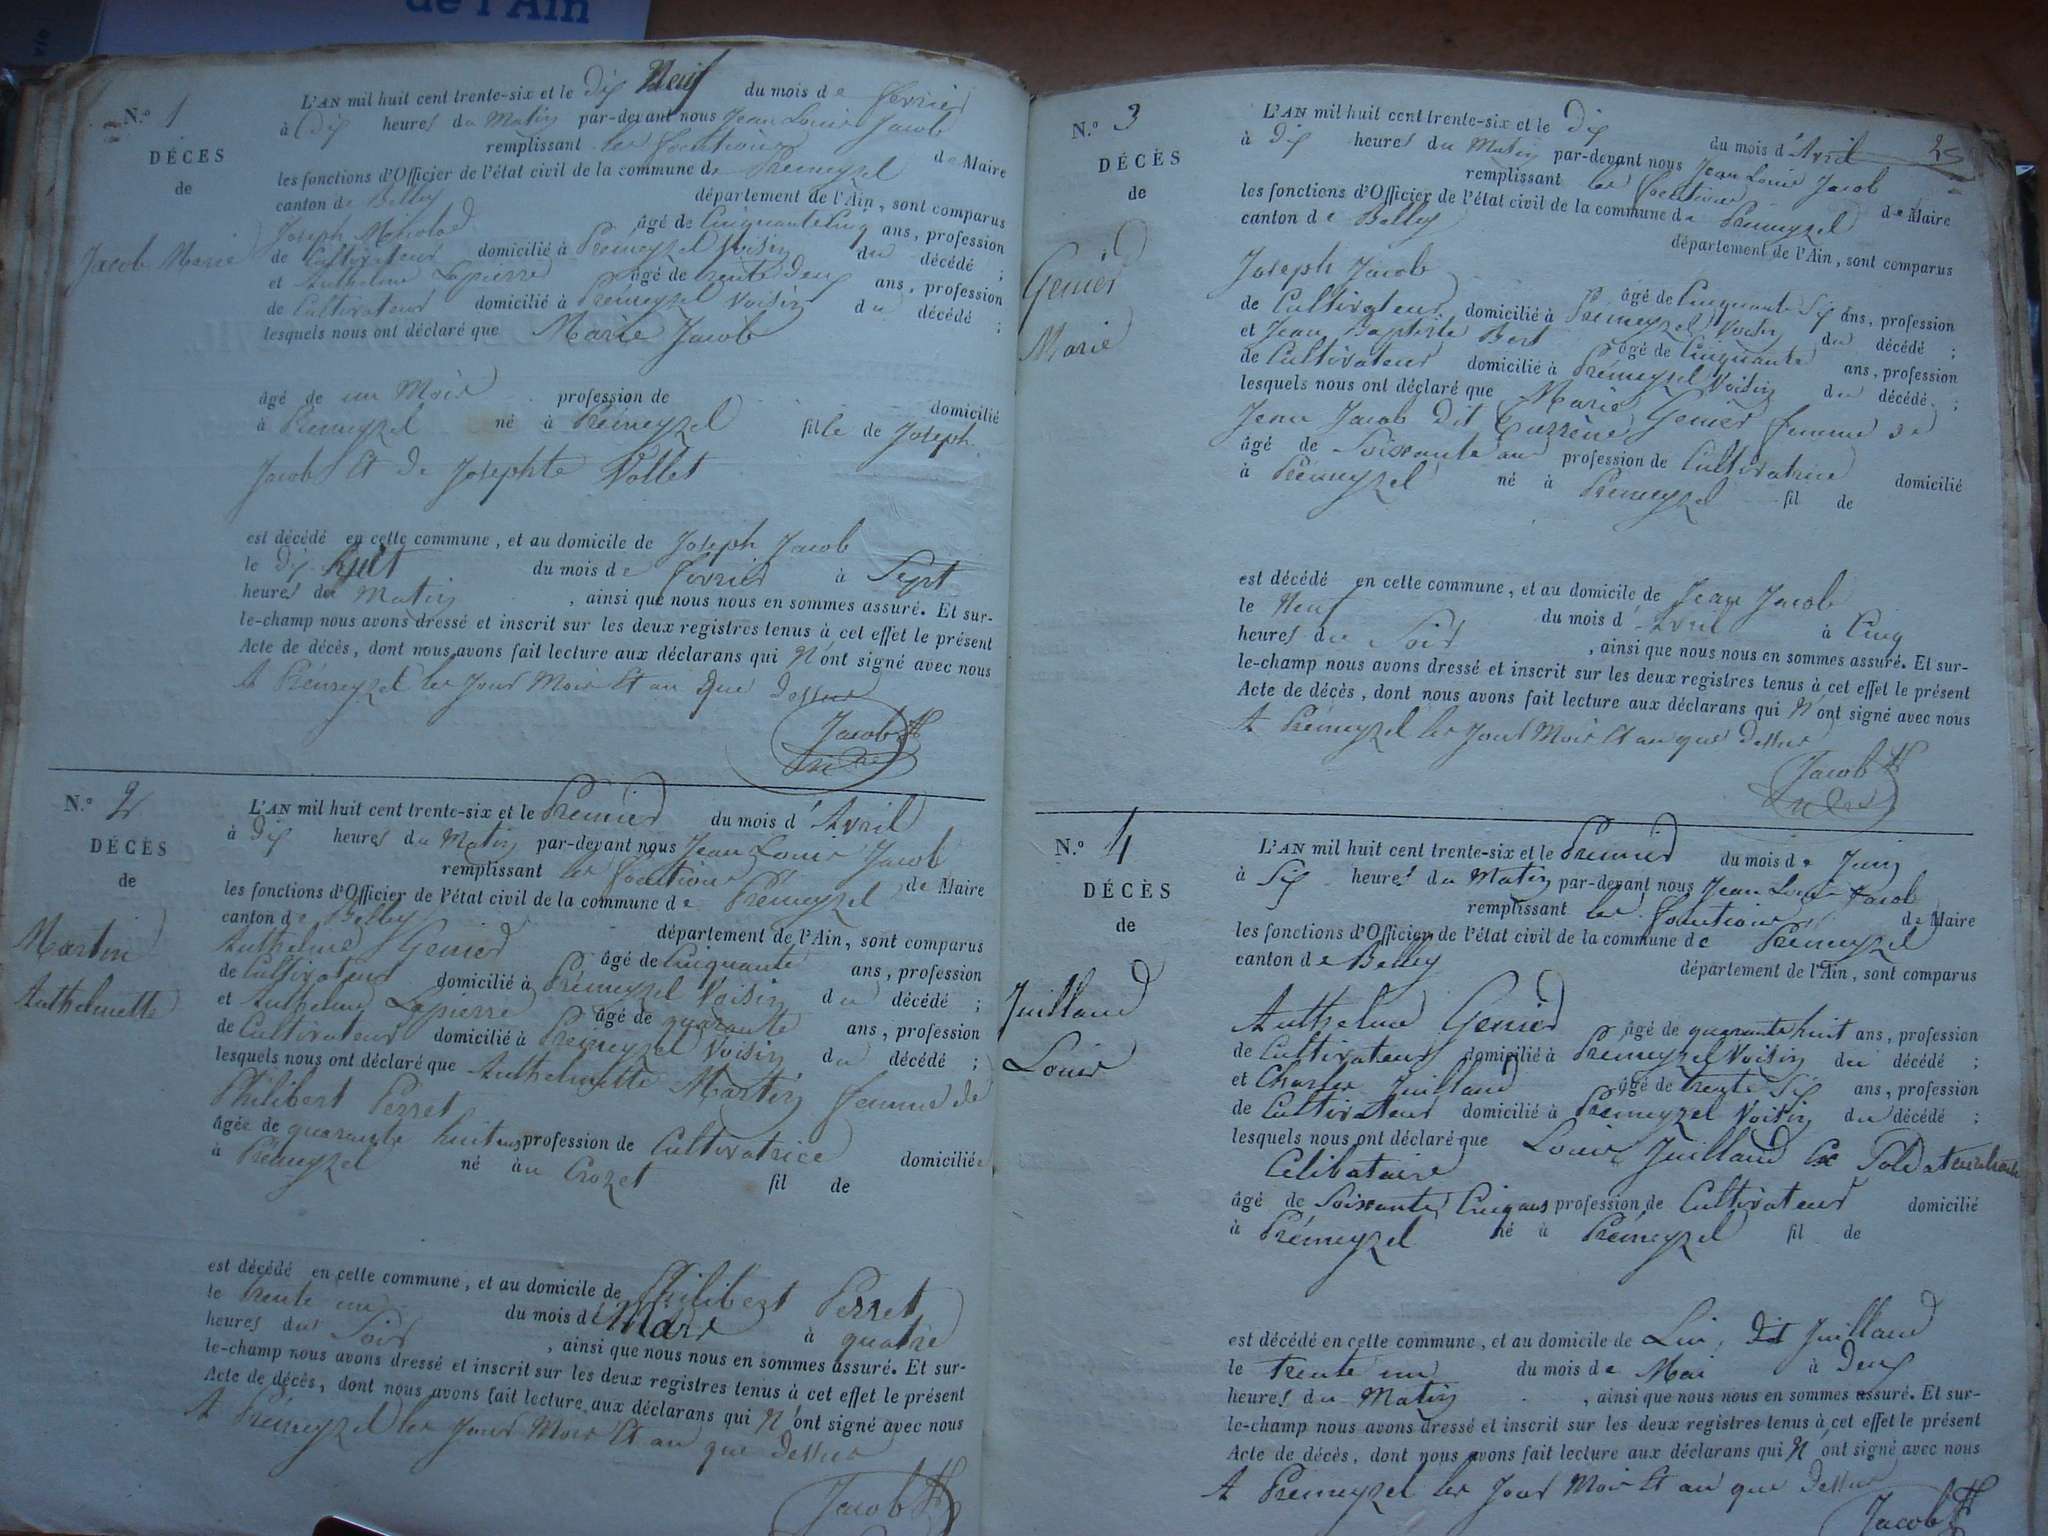 de l'Ain
N.º 1
DÉCES
de
Jacob Marie
L'AN mil huit cent trente-six et le dix Neuf du mois de fevrier
à Dix heures du Matin par-devant nous Jean Louis Jacob
remplissant les fonctions de Maire
les fonctions d'Officier de l'état civil de la commune de Prémeyzel
canton de Belley département de l'Ain, sont comparus
Joseph âgé de Cinquante Cinq ans, profession
de Cultivateur domicilié à Prémeyzel Voisin du décédé ;
et Anthelme Lapierre âgé de trente deux ans, profession
de Cultivateur domicilié à Prémeyzel Voisin du décédé ;
lesquels nous ont déclaré que Marie Jacob
âgé de un Mois profession de domicilié
à Prémeyzel né à Prémeyzel fille de Joseph
Jacob Et de Josephte Vollet
est décédé en cette commune, et au domicile de Joseph Jacob
le dix huit du mois de fevrier à Sept
heures du Matin , ainsi que nous nous en sommes assuré. Et sur-
le-champ nous avons dressé et inscrit sur les deux registres tenus à cet effet le présent
Acte de décès, dont nous avons fait lecture aux déclarans qui N'ont signé avec nous
A Prémeyzel les Jour Mois Et an que dessus
Jacob
N.º 2
DÉCÈS
de
Martin
Anthelmette
L'AN mil huit cent trente-six et le Premier du mois d'Avril
à Dix heures du Matin par-devant nous Jean Louis Jacob
remplissant les fonctions de Maire
les fonctions d'Officier de l'état civil de la commune de Prémeyzel
canton de Belley département de l'Ain, sont comparus
Anthelme Genier âgé de Cinquante ans, profession
de Cultivateur domicilié à Prémeyzel Voisin du décédé ;
et Anthelme Lapierre âgé de quarante ans, profession
de Cultivateur domicilié à Prémeyzel Voisin du décédé ;
lesquels nous ont déclaré que Anthelmette Martin femme de
Philibert Perret
âgée de quarante huit ans profession de Cultivatrice domiciliée
à Prémeyzel né au Crozet fil de
est décédé en cette commune, et au domicile de Philibert Perret
le trente un du mois de Mars à quatre
heures du Soir , ainsi que nous nous en sommes assuré. Et sur-
le-champ nous avons dressé et inscrit sur les deux registres tenus à cet effet le présent
Acte de décès, dont nous avons fait lecture aux déclarans qui N'ont signé avec nous
A Prémeyzel les Jour Mois Et an que dessus
Jacob
N.º 3
DÉCÈS
de
Genier
Marie
25
L'AN mil huit cent trente-six et le Dix du mois d'Avril
à dix heures du Matin par-devant nous Jean Louis Jacob
remplissant les fonctions de Maire
les fonctions d'Officier de l'état civil de la commune de Prémeyzel
canton de Belley département de l'Ain, sont comparus
Joseph Jacob âgé de Cinquante Six ans, profession
de Cultivateur domicilié à Prémeyzel Voisin du décédé ;
et Jean Baptiste Bert âgé de Cinquante ans, profession
de Cultivateur domicilié à Prémeyzel Voisin du décédé ;
lesquels nous ont déclaré que Marie Genier femme de
Jean Jacob Dit
âgé de Soixante an profession de Cultivatrice domicilié
à Prémeyzel né à Prémeyzel fil de
est décédé en cette commune, et au domicile de Jean Jacob
le Neuf du mois d'Avril à Cinq
heures du Soir , ainsi que nous nous en sommes assuré. Et sur-
le-champ nous avons dressé et inscrit sur les deux registres tenus à cet effet le présent
Acte de décès, dont nous avons fait lecture aux déclarans qui N'ont signé avec nous
A Prémeyzel les Jour Mois Et an que dessus
Jacob
N.º 4
DÉCÈS
de
Juilland
Louis
L'AN mil huit cent trente-six et le Premier du mois de Juin
à Six heures du Matin par-devant nous Jean Louis Jacob
remplissant les fonctions de Maire
les fonctions d'Officier de l'état civil de la commune de Prémeyzel
canton de Belley département de l'Ain, sont comparus
Anthelme Genier âgé de quarante huit ans, profession
de Cultivateur domicilié à Prémeyzel Voisin du décédé ;
et Charles Juilland âgé de trente Six ans, profession
de Cultivateur domicilié à Prémeyzel Voisin du décédé ;
lesquels nous ont déclaré que Louis Juilland Ex Soldat
Célibataire
âgé de Soixante Cinq ans profession de Cultivateur domicilié
à Prémeyzel né à Prémeyzel fil de
est décédé en cette commune, et au domicile de Lui, dit Juilland
le trente un du mois de Mai à deux
heures du Matin , ainsi que nous nous en sommes assuré. Et sur-
le-champ nous avons dressé et inscrit sur les deux registres tenus à cet effet le présent
Acte de décès, dont nous avons fait lecture aux déclarans qui N'ont signé avec nous
A Prémeyzel les Jour Mois Et an que dessus
Jacob